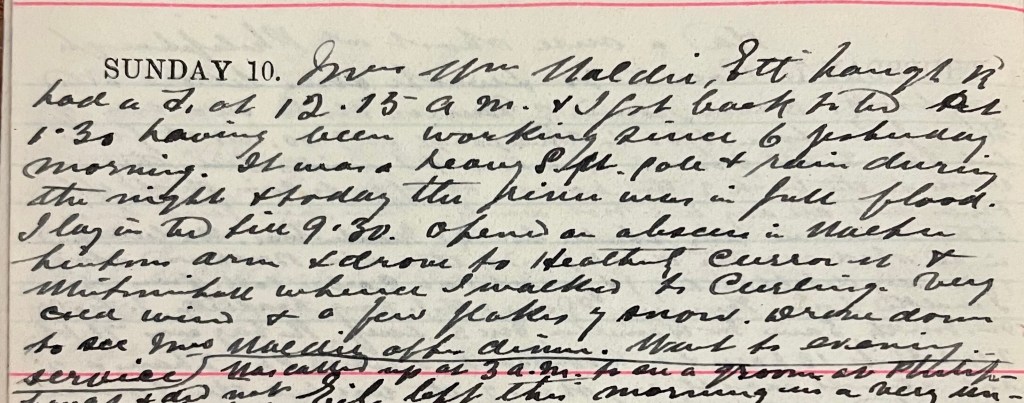 SUNDAY 10. Mrs Wm Naldie, Ett haugh
had a at 12.15 a m. & I got back to bed at
1.30 having been working since 6 yesterday
morning. It was a heavy gale & rain during
the night & today the river was in full flood.
I lay in bed till 9.30. Opened an abscess in
arm & drove to &
whence I walked to Curling. Very
cold wind & a few flakes of snow. Drove down
to see Mrs Naldie after dinner. Went to evening
service) Was called up at 3 a.m. to see a groom at Philip-
& did not left this morning in a very un-